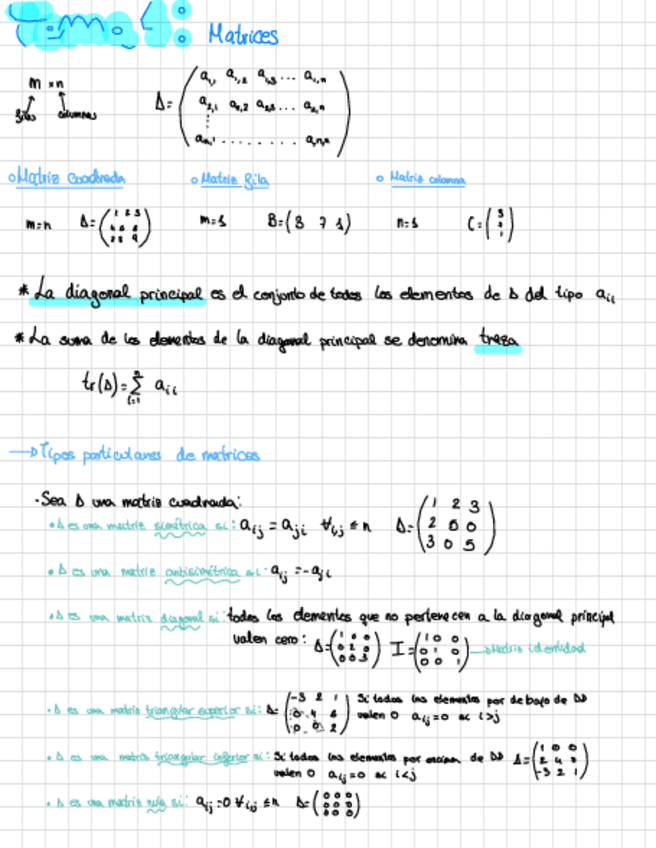 Tema 1: Matrices
m × n
filas columnas
A = ( a₁,₁ a₁,₂ a₁,₃ ... a₁,n
a₂,₁ a₂,₂ a₂,₃ ... a₂,n
⋮
aₙ,₁ ......... aₙ,ₙ )
○ Matriz Cuadrada ○ Matriz fila ○ Matriz columna
m=n A = ( 1 2 3
4 5 6
7 8 9 ) m=1 B = (3 7 1) n=1 C = ( 3
1 )
* La diagonal principal es el conjunto de todos los elementos de A del tipo aᵢᵢ
* La suma de los elementos de la diagonal principal se denomina traza
tr(A) = Σ aᵢᵢ
→ Tipos particulares de matrices
· Sea A una matriz cuadrada:
· A es una matriz simétrica si: aᵢⱼ = aⱼᵢ ∀i,j ≤ n A = ( 1 2 3
2 0 0
3 0 5 )
· A es una matriz antisimétrica si: aᵢⱼ = -aⱼᵢ
· A es una matriz diagonal si: todos los elementos que no pertenecen a la diagonal principal
valen cero: A = ( 1 0 0
0 2 0
0 0 3 ) I = ( 1 0 0
0 1 0
0 0 1 ) → Matriz identidad
· A es una matriz triangular superior si: A = ( -3 2 1
0 4 6
0 0 2 ) Si todos los elementos por debajo de DP
valen 0 aᵢⱼ=0 si i>j
· A es una matriz triangular inferior si: Si todos los elementos por encima de DP
valen 0 aᵢⱼ=0 si i<j A = ( 1 0 0
2 4 0
-3 2 1 )
· A es una matriz nula si: aᵢⱼ=0 ∀i,j ≤ n A = ( 0 0 0
0 0 0
0 0 0 )